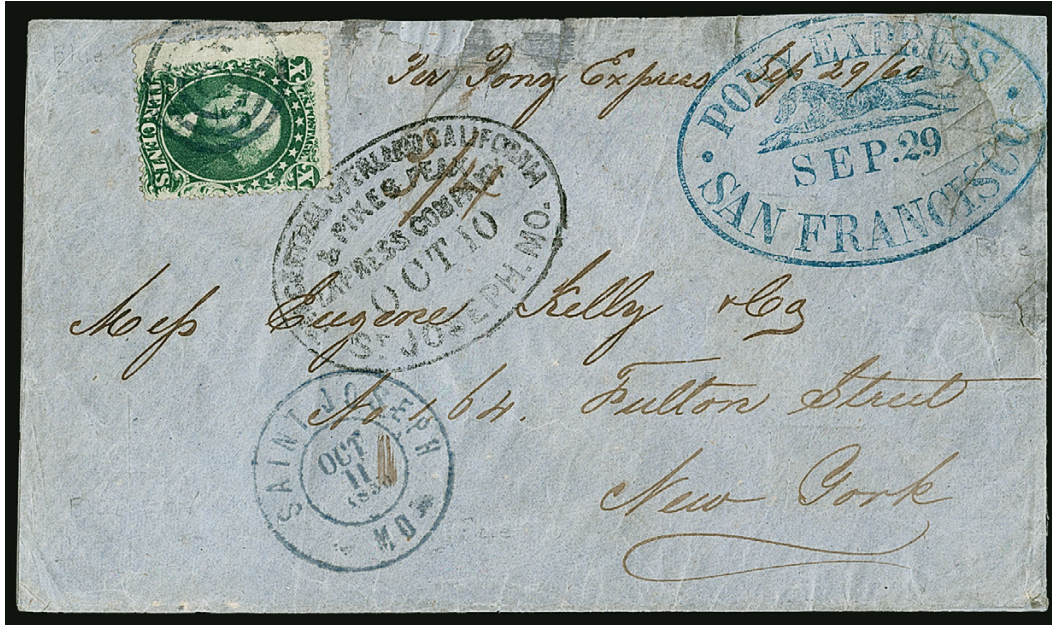 TEN CENTS
Per Pony Express Sep 29/60
· PONY EXPRESS ·
SEP. 29
SAN FRANCISCO
CENTRAL OVERLAND CALIFORNIA
& PIKES PEAK
EXPRESS COMPANY
OCT 10
ST. JOSEPH. MO.
Mess Eugene Kelly & Co
No 164. Fulton Street
New York
SAINT JOSEPH MO
OCT
11